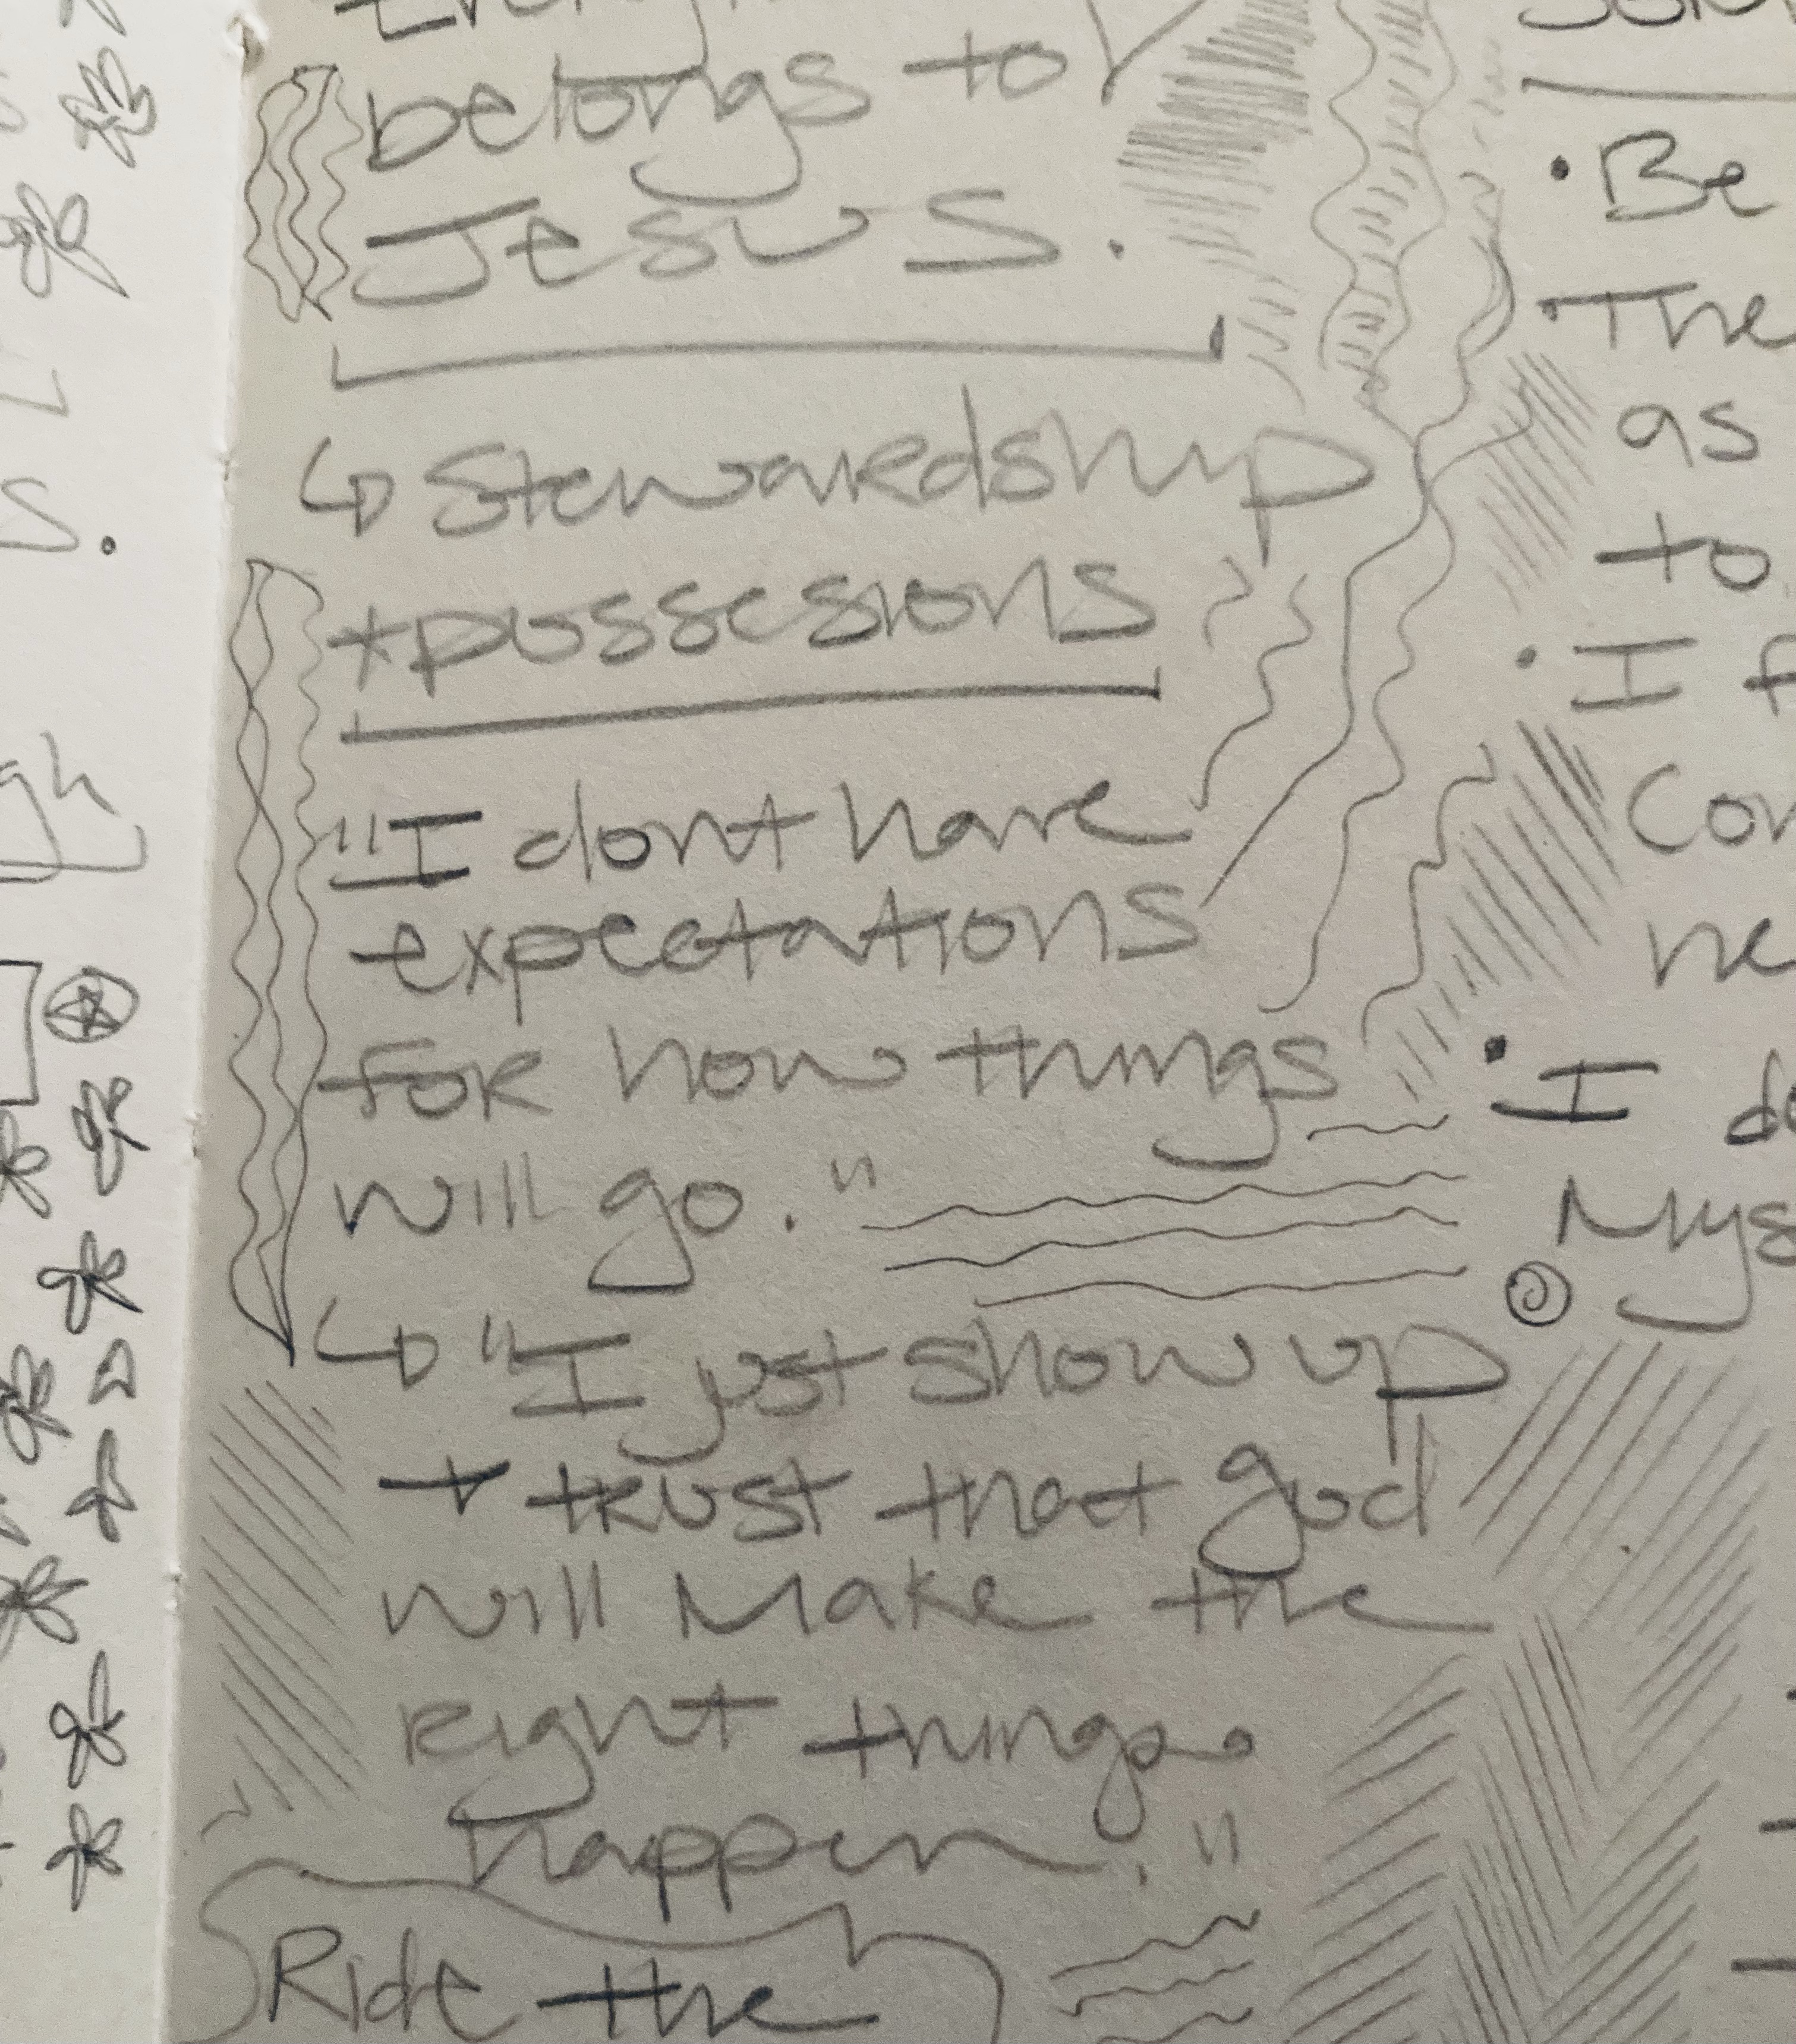 belongs to
Jesus.
Stewardship
+ possesions
"I dont have
expectations
for how things
will go."
"I just show up
+ trust that god
will make the
right things
happen."
Ride the
• Be
• The
as
to
• I
• I